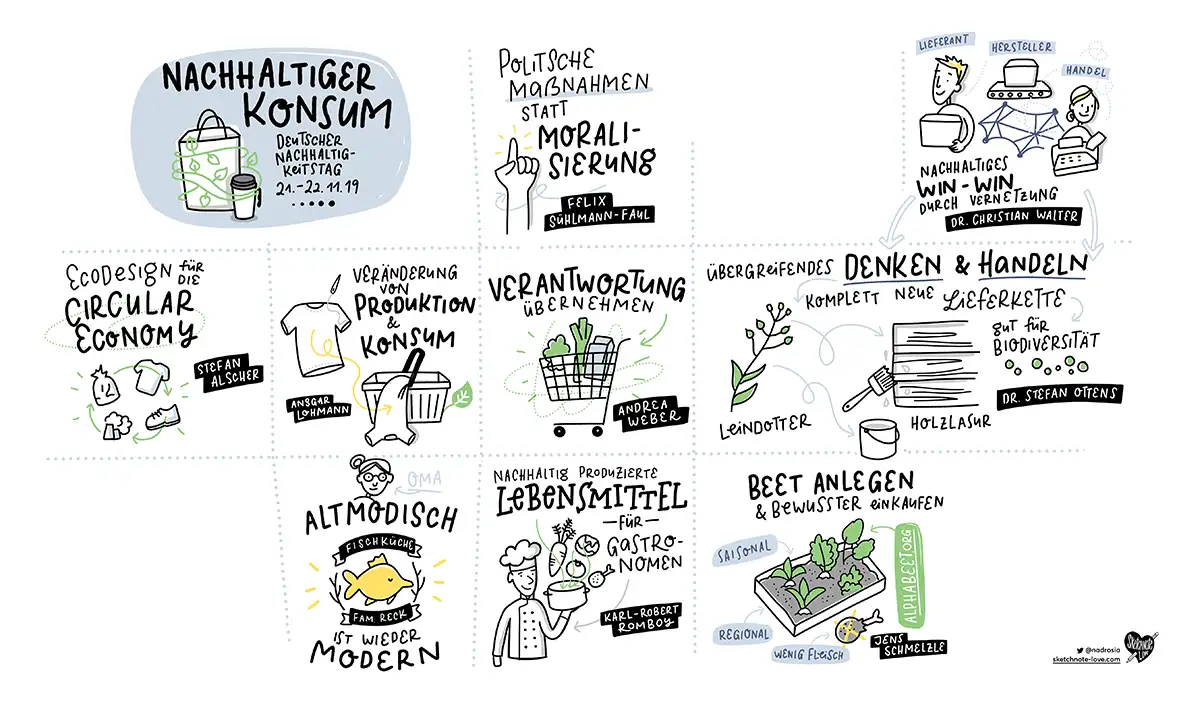 NACHHALTIGER
KONSUM
DEUTSCHER
NACHHALTIG-
KEITSTAG
21.-22.11.19
POLITSCHE
MAßNAHMEN
STATT
MORALI-
SIERUNG
FELIX
SÜHLMANN-FAUL
LIEFERANT
HERSTELLER
HANDEL
NACHHALTIGES
WIN-WIN
DURCH VERNETZUNG
DR. CHRISTIAN WALTER
ECODESIGN FÜR DIE
CIRCULAR
ECONOMY
STEFAN
ALSCHER
VERÄNDERUNG
VON
PRODUKTION
&
KONSUM
ANSGAR
LOHMANN
VERANTWORTUNG
ÜBERNEHMEN
ANDREA
WEBER
ÜBERGREIFENDES DENKEN & HANDELN
KOMPLETT NEUE LIEFERKETTE
gut für
BIODIVERSITÄT
DR. STEFAN OTTENS
LEINDOTTER
HOLZLASUR
OMA
ALTMODISCH
FISCHKÜCHE
FAM. RECK
IST WIEDER
MODERN
NACHHALTIG PRODUZIERTE
LEBENSMITTEL
—FÜR—
GASTRO-
NOMEN
KARL-ROBERT
ROMBOY
BEET ANLEGEN
& BEWUSSTER EINKAUFEN
SAISONAL
REGIONAL
WENIG FLEISCH
ALPHABEET.ORG
JENS
SCHMELZLE
@nadrosia
sketchnote-love.com
Sketchnote
Love